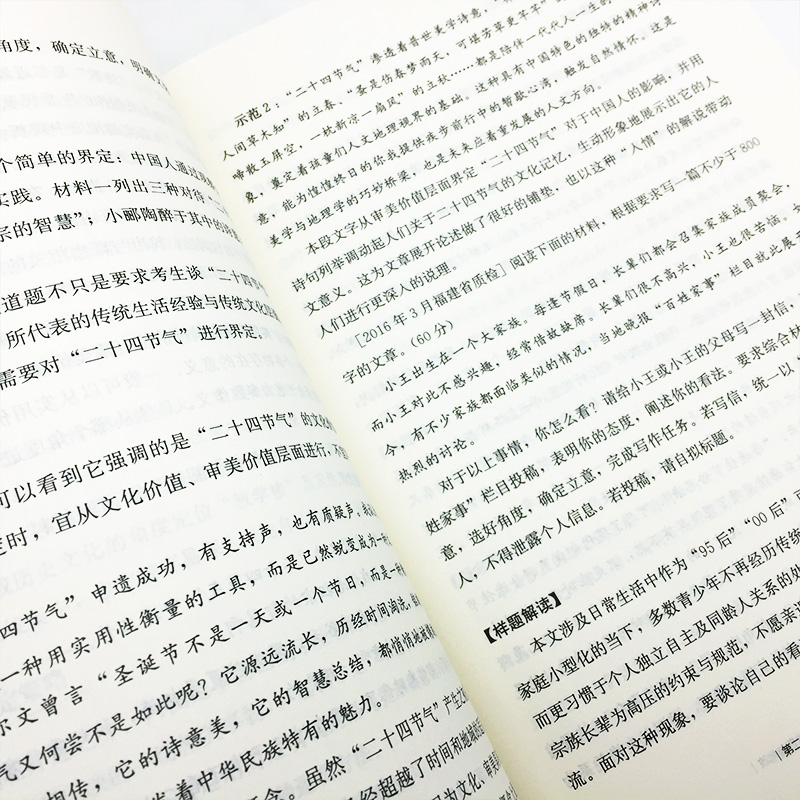 角度，确定立意，明确
个简单的界定：中国人通过
实践。材料一列出三种对待
宗的智慧”；小郦陶醉于其中的
道题不只是要求考生谈“二十四节气
所代表的传统生活经验与传统文化
需要对“二十四节气”进行界定。
可以看到它强调的是“二十四节气”的文化
时，宜从文化价值、审美价值层面进行，
四节气”申遗成功，有支持声，也有质疑声，
一种用实用性衡量的工具，而是已然蜕变成为一种
尔文曾言“圣诞节不是一天或一个节日，而是一种
气又何尝不是如此呢？它源远流长，历经时间淘洗，
相传，它的诗意美，它的智慧总结，都悄悄地
着中华民族特有的魅力。
念。虽然“二十四节气”产生
经超越了时间和地域
示范2：“二十四节气”渗透着普世美学诗意，
人间草木知”的立春、“蚤是伤春梦雨天，可堪芳草更芊芊”
啼散玉屏空，一枕新凉一扇风”的立秋……都是陪伴一代代人一生的
象，奠定着孩童们人文地理视界的基础。这种具有中国特色的独特的精神
意，能为惶惶终日的你我提供疾步前行中的暂歇心湾，触发自然情怀。这是
美学与地理学的巧妙桥梁，也是未来应着重发展的人文方向。
本段文字从审美价值层面界定“二十四节气”对于中国人的影响，并用
诗句列举调动起人们关于二十四节气的文化记忆，生动形象地展示出它的人
文意义。这为文章展开论述做了很好的铺垫，也以这种“人情”的解说带动
人们进行更深入的说理。
[2016年3月福建省质检] 阅读下面的材料，根据要求写一篇不少于800
字的文章。(60分)
小王出生在一个大家族。每逢节假日，长辈们都会召集家族成员聚会，
而小王对此不感兴趣，经常借故缺席。长辈们很不高兴，小王也很苦恼。
今，有不少家族都面临类似的情况，当地晚报“百姓家事”栏目就此展
热烈的讨论。
对于以上事情，你怎么看？请给小王或小王的父母写一封信，
姓家事”栏目投稿，表明你的态度，阐述你的看法。要求综合材
意，选好角度，确定立意，完成写作任务。若写信，统一以“
人，不得泄露个人信息。若投稿，请自拟标题。
【样题解读】
本文涉及日常生活中作为“95后”“00后”
家庭小型化的当下，多数青少年不再经历传统
而更习惯于个人独立自主及同龄人关系的处
宗族长辈为高压的约束与规范，不愿亲
流。面对这种现象，要谈论自己的看
第二